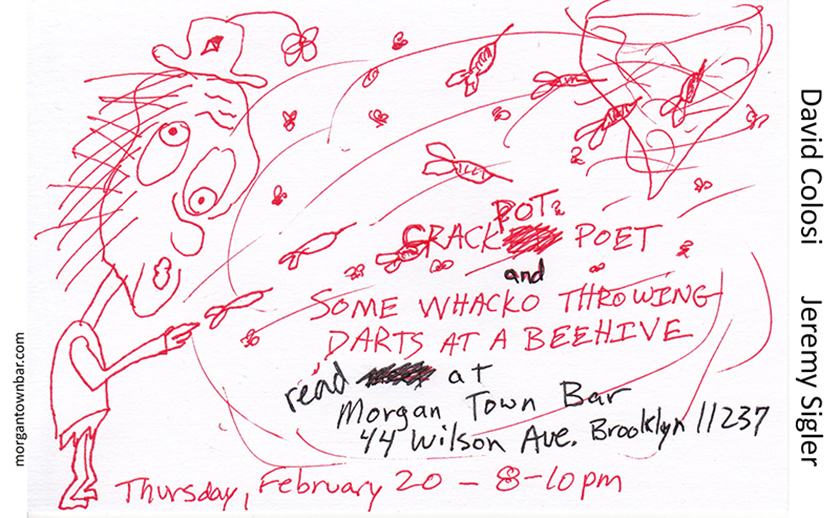 POT
CRACK POET
and
SOME WHACKO THROWING
DARTS AT A BEEHIVE
read at
Morgan Town Bar
44 Wilson Ave. Brooklyn 11237
Thursday, February 20 - 8-10pm
David Colosi Jeremy Sigler
morgantownbar.com